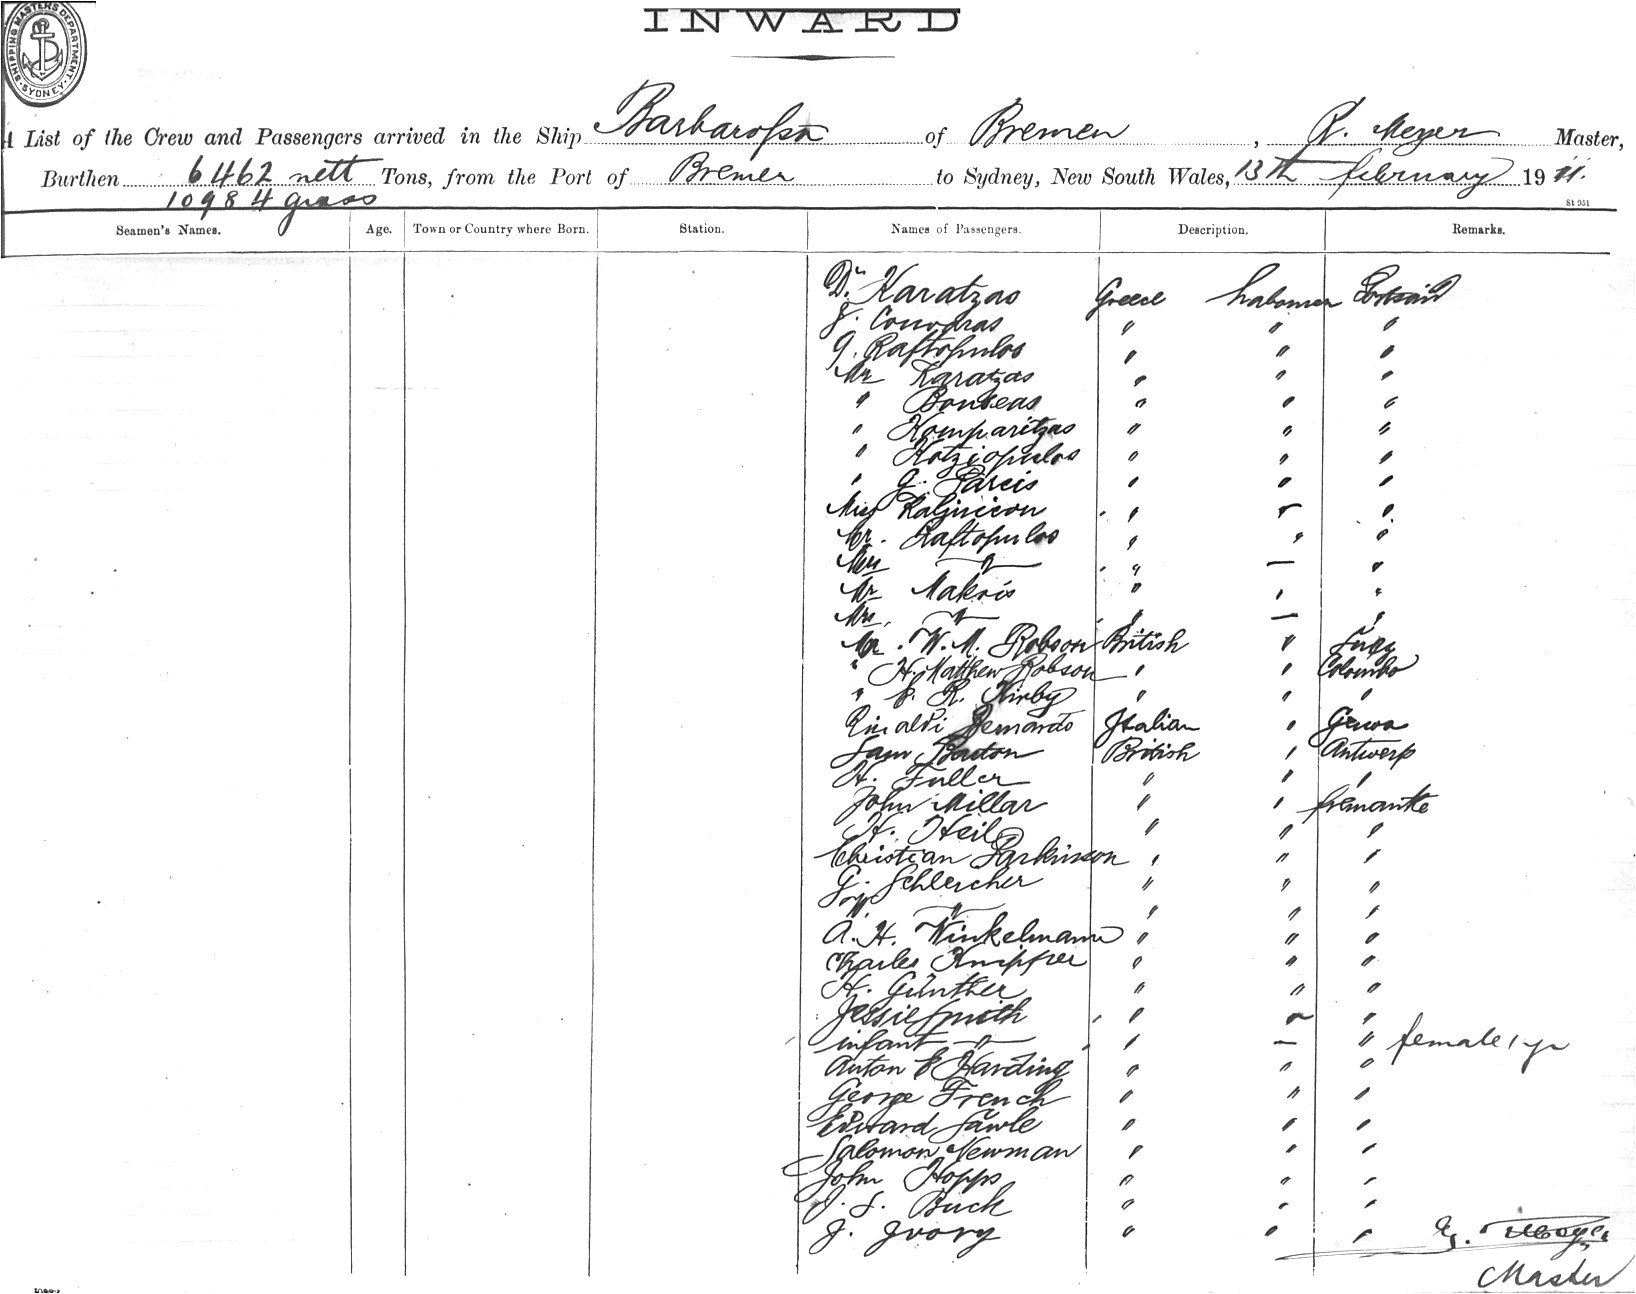 SHIPPING MASTERS DEPARTMENT. SYDNEY.
INWARD
A List of the Crew and Passengers arrived in the Ship Barbarossa of Bremen, Meyer Master,
Burthen 6462 nett Tons, from the Port of Bremen to Sydney, New South Wales, 13th february 1911.
10984 gross
St 951
Seamen's Names. Age. Town or Country where Born. Station. Names of Passengers. Description. Remarks.
Dr. Karatzas Greece labourer Portsaid
Conopras " " "
G. Raftopulos " " "
Mr Karatzas " " "
" " " "
" Komparitzas " " "
" Kotziopulos " " "
" G. " " "
Miss " — "
Mr. Raftopulos " " "
Mrs " " — "
Mr Makris " " "
Mrs. " " — "
Mr. W. M. Robson British "
" H. Matthew Robson " " Colombo
" R. Kirby " " "
Rinaldi Bernardo Italian " Genoa
Sam Barton British " Antwerp
H. Fuller " " "
John Millar " " fremantle
H. Heil " " "
Christian Parkinson " " "
G. Schleicher " " "
" " " "
A. H. Winkelmann " " "
Charles Knipfer " " "
H. Günther " " "
Jessie Smith " — "
infant " " — " female 1 yr
Anton E Harding " " "
George French " " "
Edward Fawle " " "
Salomon Newman " " "
John Hopps " " "
J. S. Buck " " "
J. Ivory " " "
Master